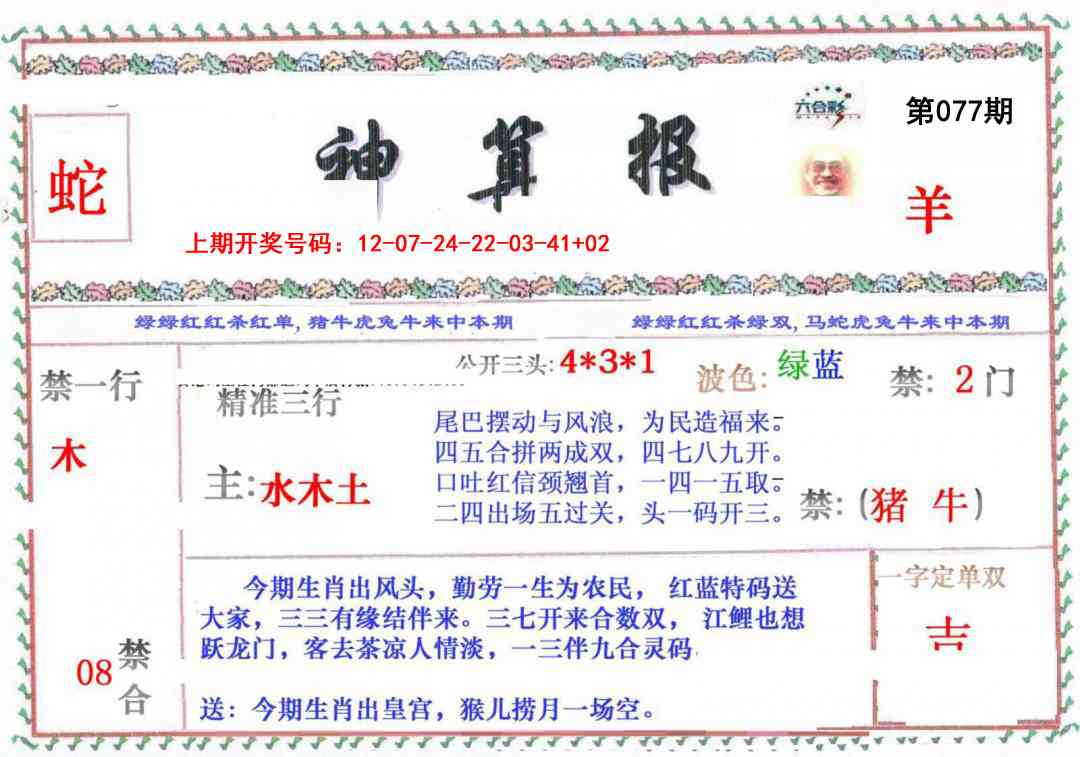 六合彩
第077期
蛇
神算报
羊
上期开奖号码：12-07-24-22-03-41+02
绿绿红红杀红单,猪牛虎兔牛来中本期
绿绿红红杀绿双,马蛇虎兔牛来中本期
禁一行
木
公开三头:4*3*1
波色:绿蓝
禁:2门
精准三行
主:水木土
尾巴摆动与风浪，为民造福来。
四五合拼两成双，四七八九开。
口吐红信颈翘首，一四一五取。
二四出场五过关，头一码开三。
禁:(猪 牛)
今期生肖出风头，勤劳一生为农民， 红蓝特码送
大家，三三有缘结伴来。三七开来合数双， 江鲤也想
跃龙门，客去茶凉人情淡，一三伴九合灵码.
送：今期生肖出皇宫，猴儿捞月一场空。
一字定单双
吉
08禁合